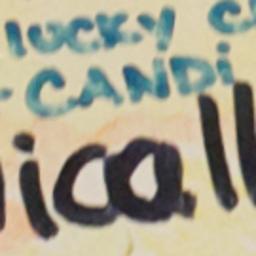 lucky c
-CANDi
icall